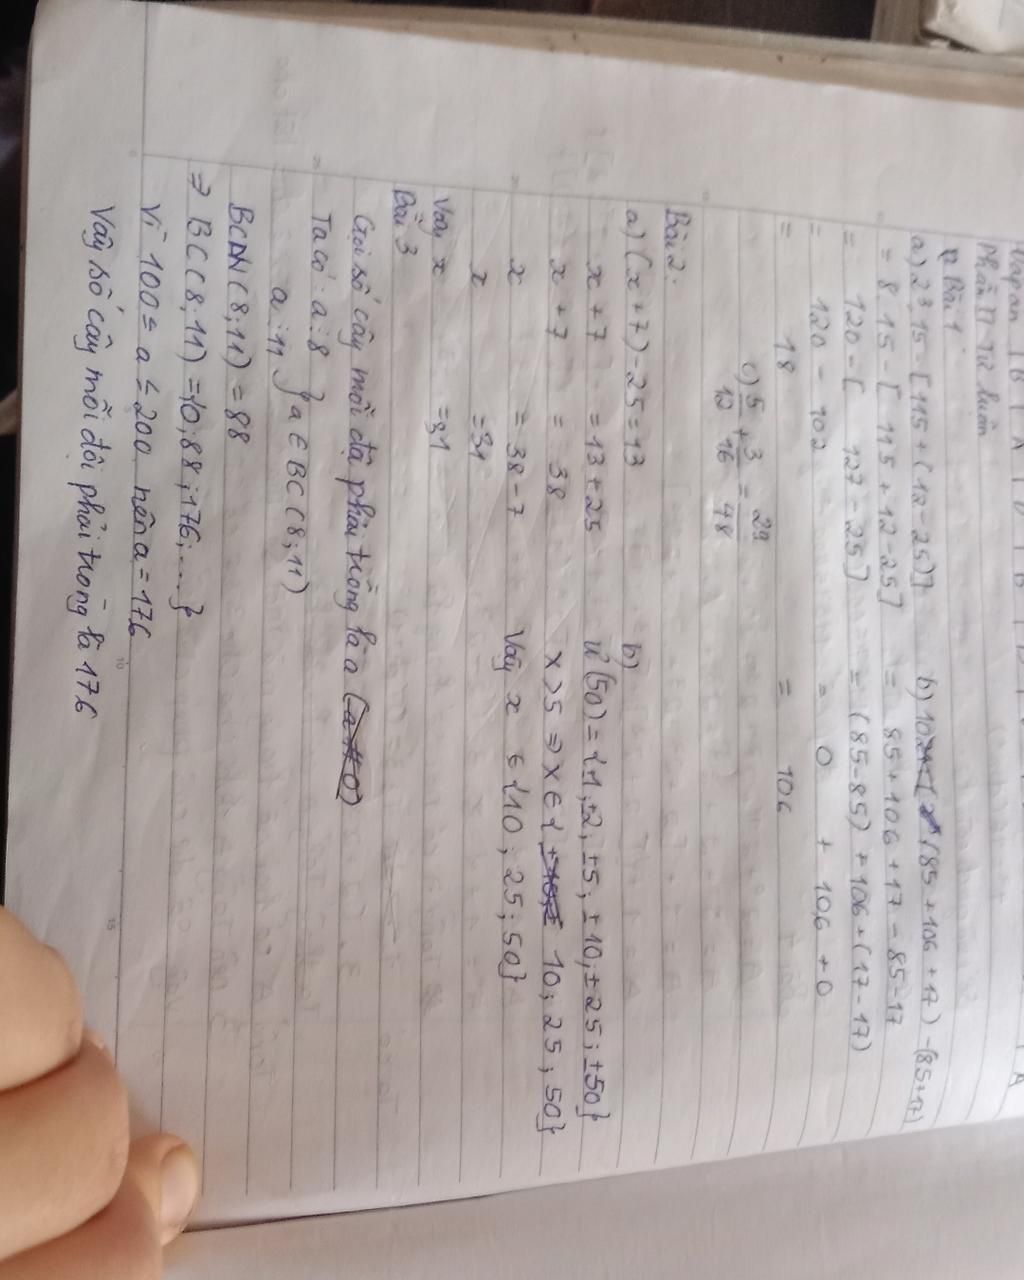 Đáp án 1B 1 A 1 D 1 B 1 D 1 A
Phần II Tự luận
Bài 1
a) 23.15 - [115 + (12 - 25)]
= 8.15 - [115 + 12 - 25]
= 120 - [ 127 - 25]
= 120 - 102
= 18
b) (85 + 106 + 17) - (85 + 17)
= 85 + 106 + 17 - 85 - 17
= (85 - 85) + 106 + (17 - 17)
= 0 + 106 + 0
= 106
c) 5/12 + 3/16 = 29/48
Bài 2:
a) (x + 7) - 25 = 13
x + 7 = 13 + 25
x + 7 = 38
x = 38 - 7
x = 31
Vậy x = 31
b)
Ư(50) = {±1, ±2, ±5, ±10, ±25; ±50}
x > 5 => x ∈ { 10; 25; 50}
Vậy x ∈ {10; 25; 50}
Bài 3
Gọi số cây mỗi đội phải trồng là a (a ≠ 0)
Ta có: a ⋮ 8
a ⋮ 11 } a ∈ BC (8; 11)
BCNN (8; 11) = 88
=> BC (8; 11) = {0; 88; 176; ....}
Vì 100 ≤ a ≤ 200 nên a = 176
Vậy số cây mỗi đội phải trồng là 176